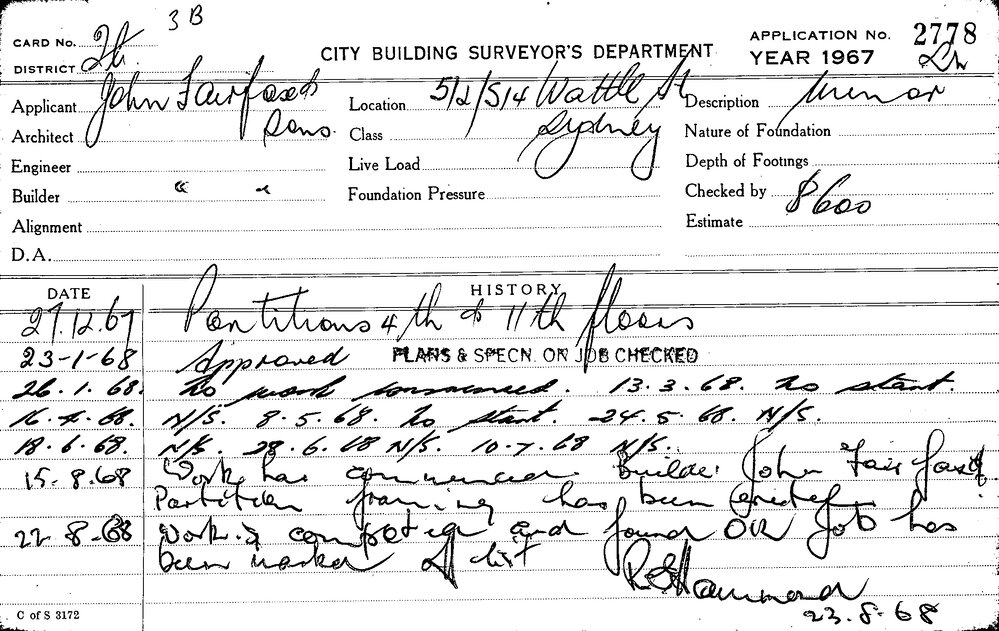 3B
CARD No. 2t.
DISTRICT
CITY BUILDING SURVEYOR'S DEPARTMENT
APPLICATION No. 2778
YEAR 1967
Applicant John Fairfax &
Sons.
Architect
Engineer
Builder " "
Alignment
D.A.
Location 512/514 Wattle St
Sydney
Class
Live Load
Foundation Pressure
Description Minor
Nature of Foundation
Depth of Footings
Checked by
Estimate $600
DATE HISTORY
27.12.67 Partitions 4th & 11th floors
23-1-68 Approved PLANS & SPECN. ON JOB CHECKED
26.1.68. No work commenced. 13.3.68. No start.
16.4.68. N/S. 8.5.68. No start. 24.5.68. N/S.
18.6.68. N/S. 28.6.68 N/S. 10.7.68 N/S.
15.8.68 Work has commenced. Builder John Fairfax.
Partition framing has been erected
22 8.68 Work is completed and found OK Job has
been marked off list
R Hammond
23.8.68
C of S 3172